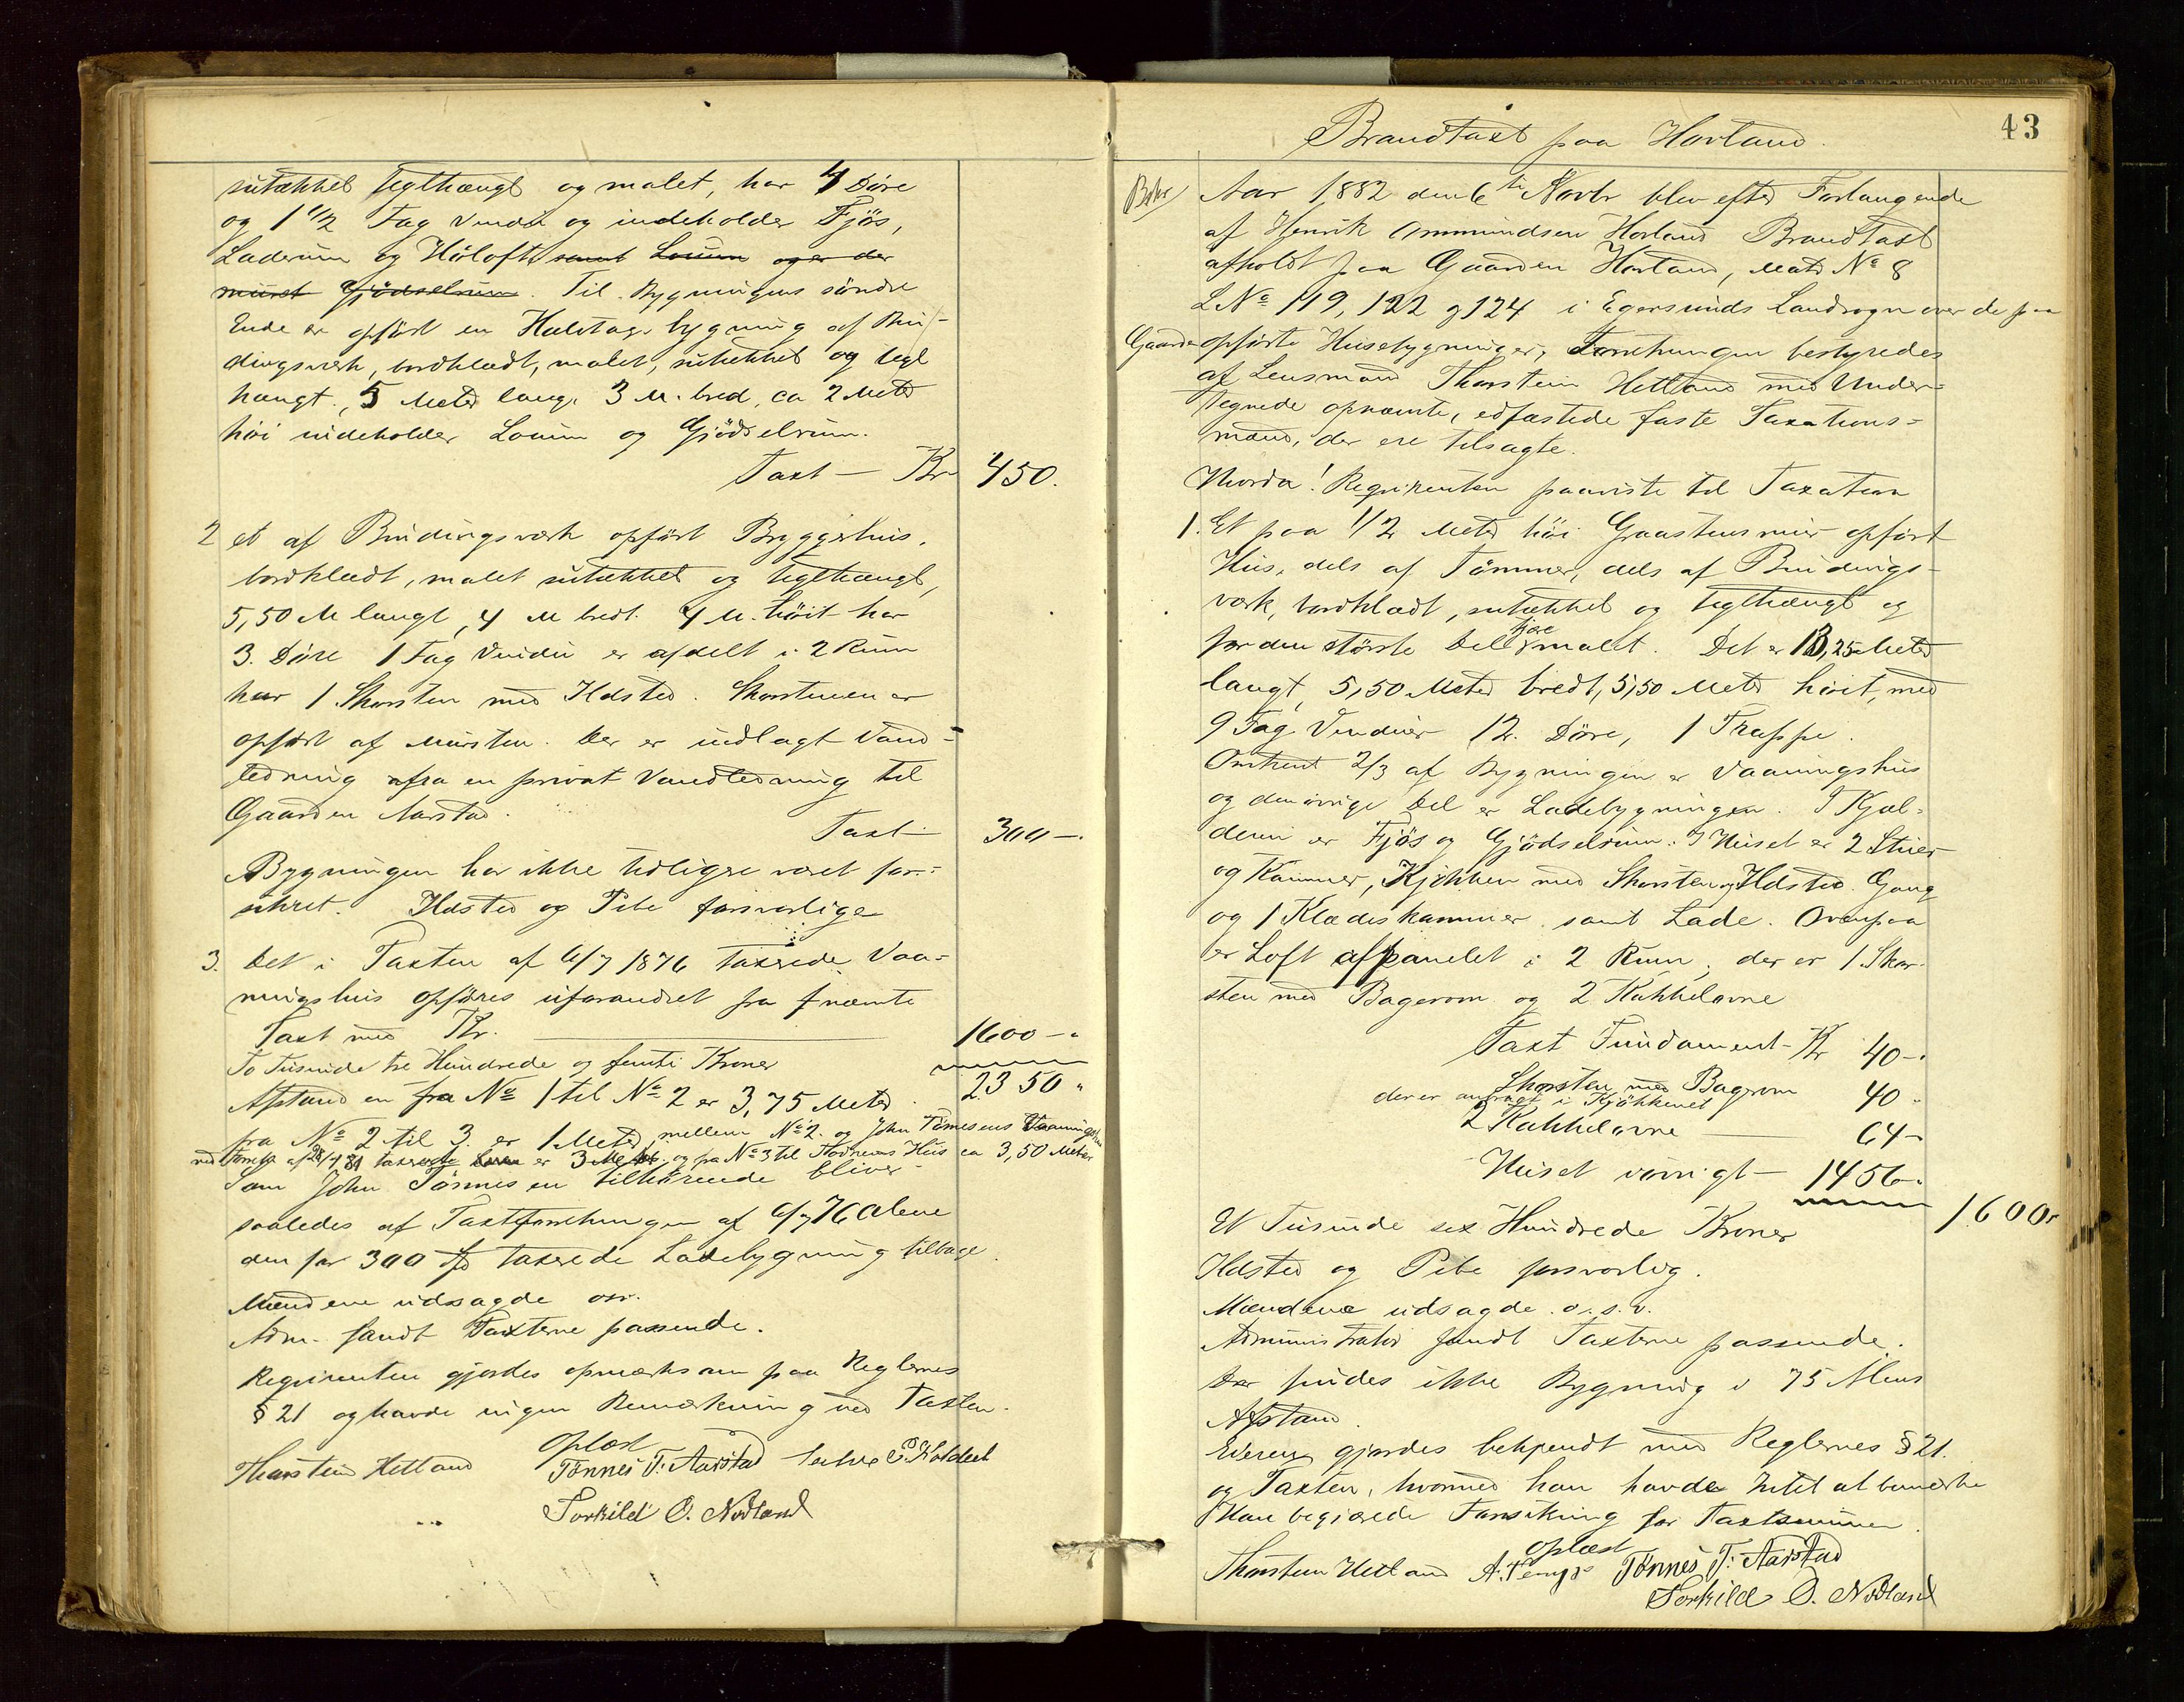 sutækket teglhængt og malet, har 4 Döre
og 1 1/2 Fag Vindu og indeholder Fjös,
Laderum og Höloft samt Louum og er der
muret Gjödselrum. Til Bygningens söndre
Ende er opfört en Halvtags bygning af Bin-
dingsværk, bordklædt, malet, sutækket og tegl
hængt, 5 Meter lang, 3 M. bred, ca 2 Meter
höi indeholder Louum og Gjödselrum.
Taxt — Kr 450.
2 et af Bindingsværk opfört Bryggerhus,
bordklædt, malet sutækket og teglhængt,
5,50 M langt, 4 M bredt. 4 M. höit har
3. Döre 1 Fag Vindu er afdelt i 2 Rum
har 1 Skorsten med Ildsted. Skorstenen er
opfört af Mursten. Der er indlagt Vand-
ledning afra en privat Vandledning til
Gaarden Aarstad.
Taxt 300 —.
Bygningen har ikke tidligere været for-
sikret. Ildsted og Pibe forsvarlige
3. Det i Taxten af 6/7 1876 taxerede Vaa-
ningshus opföres uforandret fra fnævnte
Taxt med Kr. 1600 —"
To Tusinde tre Hundrede og femti Kroner
2350 "
Afstanden fra No 1 til No 2 er 3,75 Meter.
fra No 2 til 3. er 1 Meter, mellem No 2. og John Tönnesens Vaaningshus
ved Forretn. af 28/4 81 taxerede er 3 Meter. og fra No 3 til Huus ca 3,50 Meter
Som John Tönnesen tilhörende bliver
saaledes af Taxtforretningen af 6/7 76 alene
den for 300 Spd taxerede Ladebygning tilbage.
Mændene udsagde osv.
Adm. fandt Taxterne passende.
Reqvirenten gjordes opmærksom paa Reglernes
§ 21 og havde ingen Bemærkning ved Taxten.
Oplæst
Thorstein Hetland Tönnes T. Aarstad
Torkild O. Nodland
43
Brandtaxt paa Hovland.
Aar 1882 den 6te Novbr blev efter Forlangende
af Henrik Ommundsen Hovland Brandtaxt
afholdt paa Gaarden Hovland, Matr No 8
LNo 119, 122 og 124 i Egersunds Landsogn over de paa
Gaarden opförte Husebygninger, Forretningen bestyredes
af Lensmand Thorstein Hetland med Under-
tegnede opnævnte, edfæstede faste Taxations-
mænd, der ere tilsagte.
Hvorda! Reqvirenten paaviste til Taxation
1. Et paa 1/2 Meter höi Graastensmur opfört
Hus, dels af Tömmer, dels af Bindings-
værk, bordklædt, sutækket og teglhængt og
for den störste Del malet. Det er 13,25 Meter
langt, 5,50 Meter bredt, 5,50 Meter höit, med
9 Fag Vinduer 12. Döre, 1 Trappe.
Omtrent 2/3 af Bygningen er Vaaningshus
og den övrige Del er Ladebygningen. I Kjæl-
deren er Fjös og Gjödselrum. I Huset er 2 Stuer
og Kammer, Kjökken med Skorsten og Ildsted. Gang
og 1 Klædeskammer samt Lade. Ovenpaa
er Loft afpanelet i 2 Rum, der er 1 Skor-
sten med Bagerovn og 2 Kakkelovne
Taxt Fundament Kr 40 —"
Skorsten med Bagerovn 40 "
der er anbragt i Kjökkenet
2 Kakkelovne — 64 —
Huset iövrigt — 1456 "
1600 "
Et Tusinde sex Hundrede Kroner
Ildsted og Pibe forsvarlig.
Mændene udsagde o. s. v.
Administrator fandt Taxterne passende.
Der findes ikke Bygning i 75 Alens
Afstand.
Eieren gjordes bekjendt med Reglernes § 21.
og Taxten, hvorved han havde Intet at bemærke
Han begjærede Forsikring for Taxtsummen.
Oplæst
Thorstein Hetland Tönnes T. Aarstad
Torkild O. Nodland